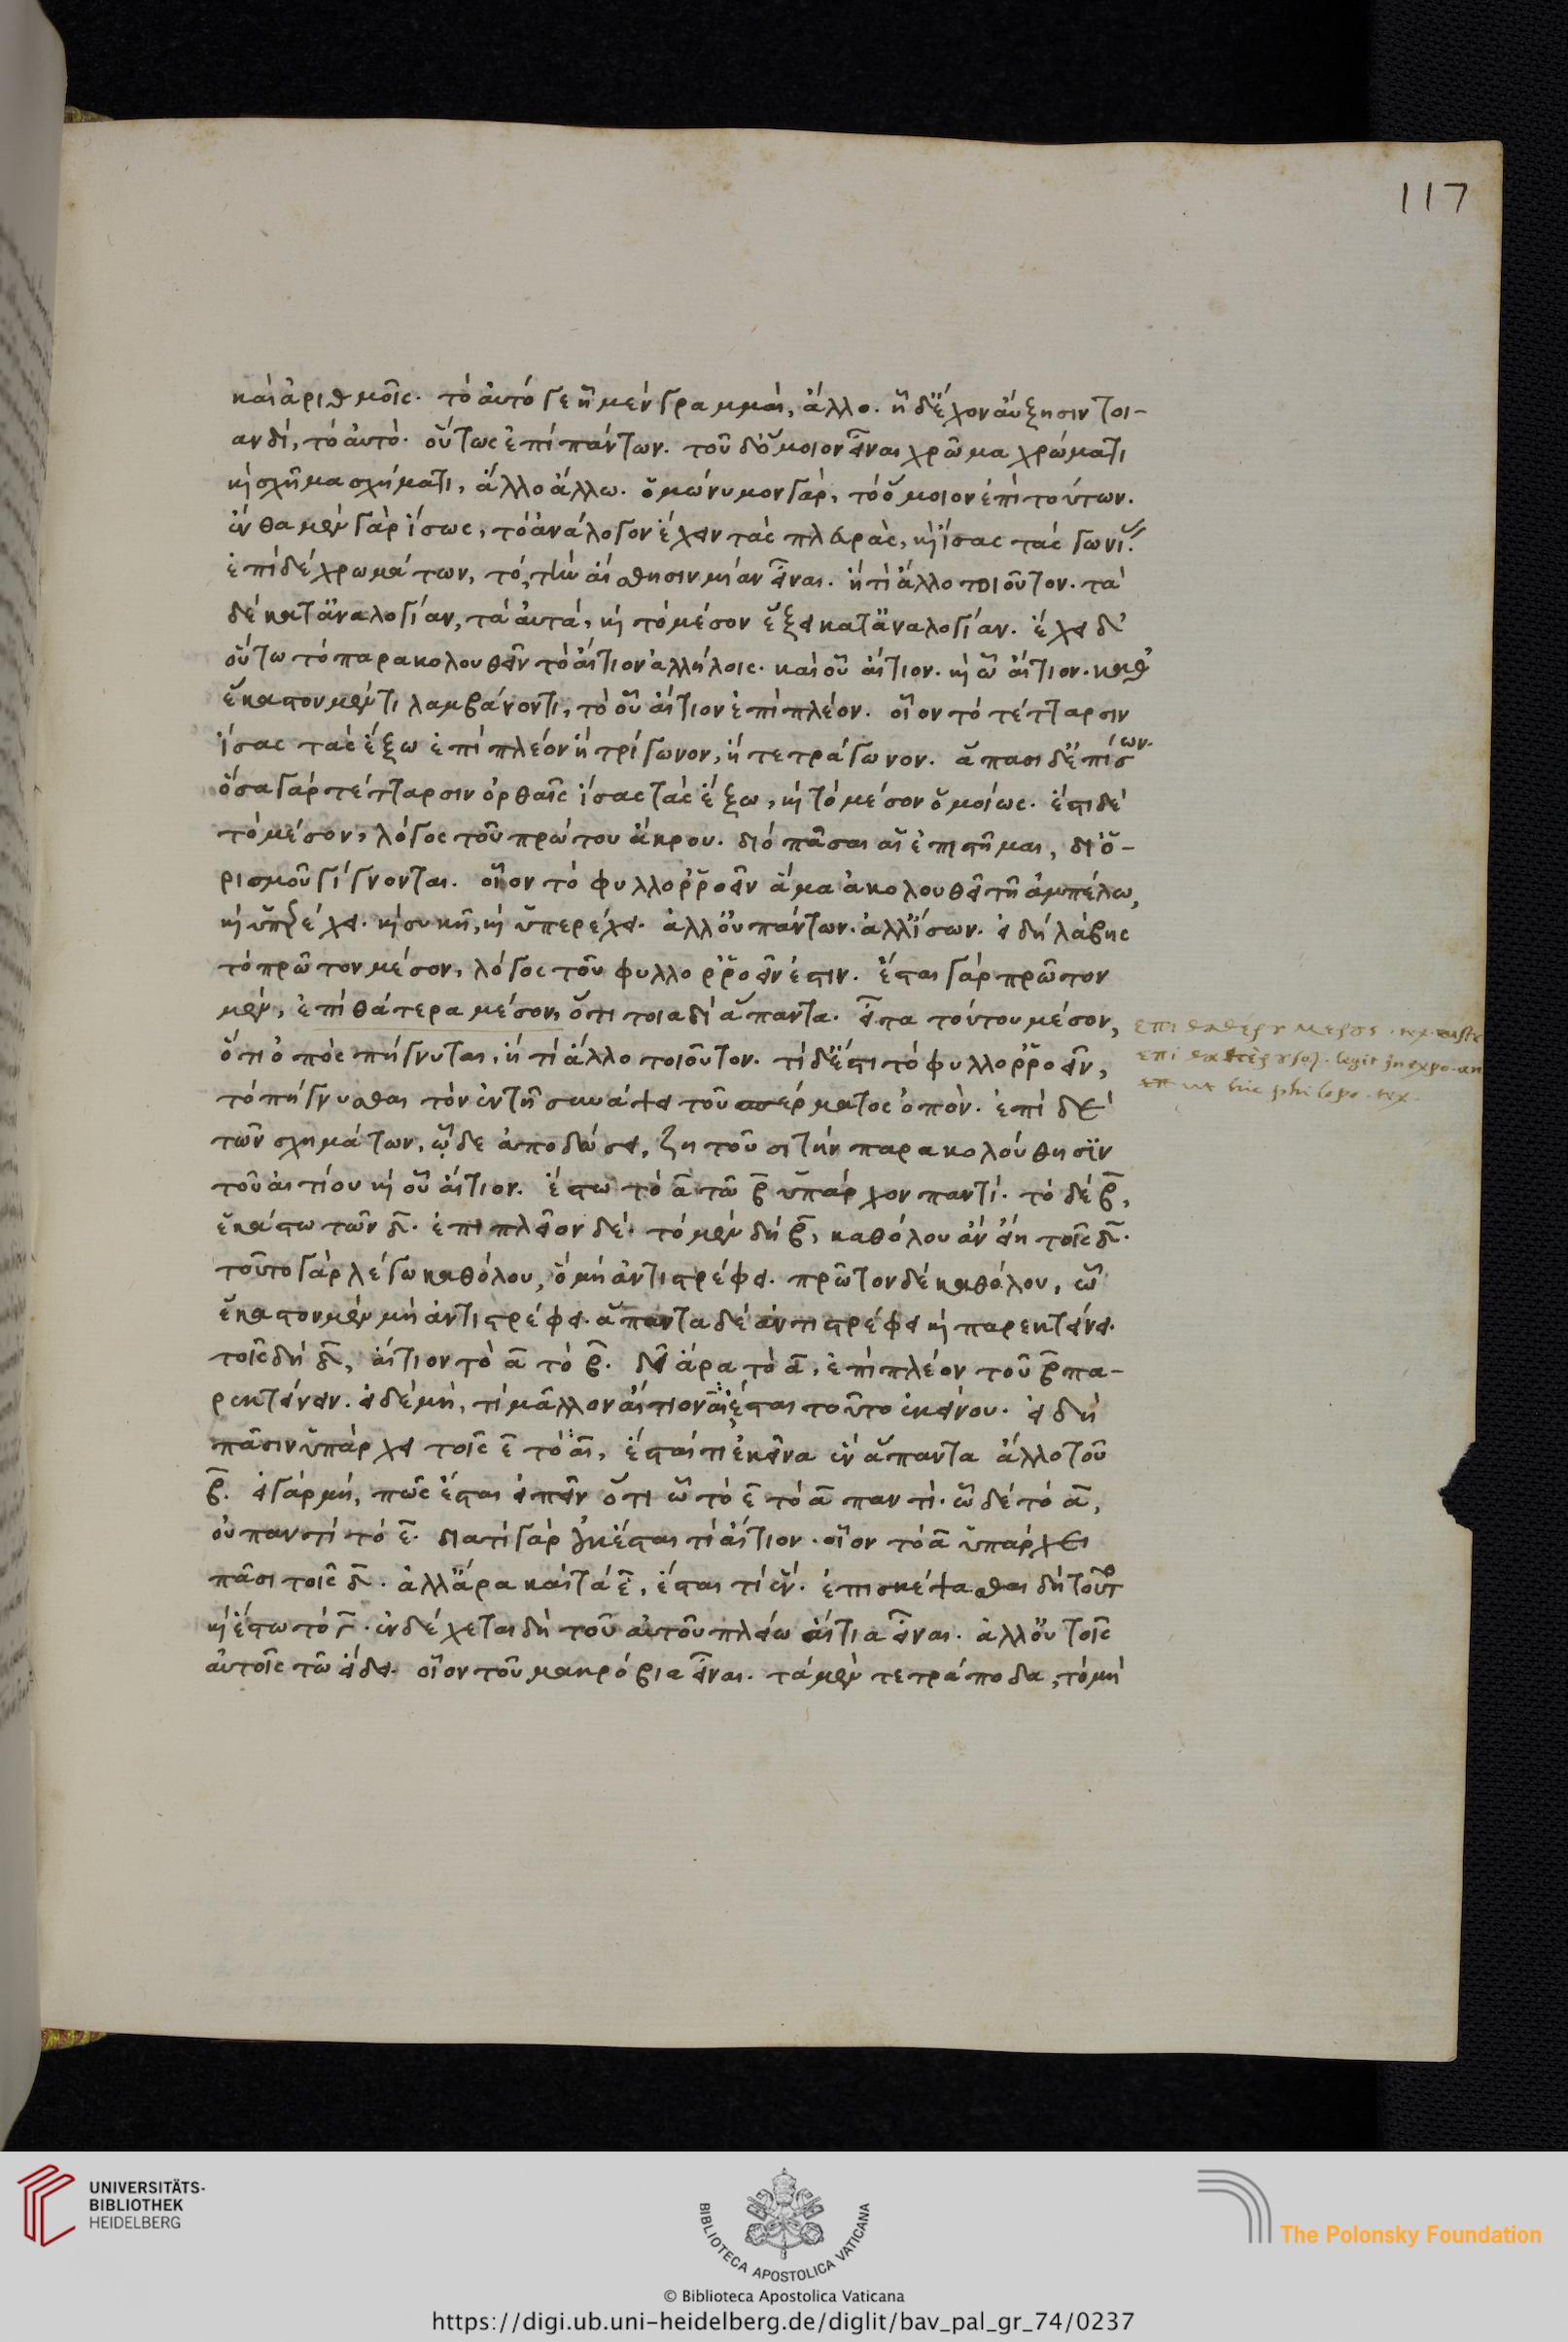 117
καὶ ἀριθμοῖς. τὸ αὐτό γε ἧ μὲν γραμμαὶ, ἄλλο. ἧ δ' ἔχον αὔξησιν τοι-
ανδὶ, τὸ αὐτό. οὕτως ἐπὶ πάντων. τοῦ δ' ὅμοιον εἶναι χρῶμα χρώματι
καὶ σχῆμα σχήματι, ἄλλο ἄλλω. ὁμώνυμον γὰρ, τὸ ὅμοιον ἐπὶ τούτων.
ἔνθα μὲν γὰρ ἴσως, τὸ ἀνάλογον ἔχειν τὰς πλευρὰς, καὶ ἴσας τὰς γωνίας
ἐπὶ δὲ χρωμάτων, τὸ, τὴν αἴσθησιν μίαν εἶναι. ἤ τι ἄλλο τοιοῦτον. τὰ
δὲ κατ' ἀναλογίαν, τὰ αὐτὰ, καὶ τὸ μέσον ἕξει κατ' ἀναλογίαν. ἔχει δ'
οὕτω τὸ παρακολουθεῖν τὸ αἴτιον ἀλλήλοις. καὶ οὗ αἴτιον. καὶ ὧ αἴτιον. καθ'
ἕκαστον μέν τι λαμβάνοντι, τὸ οὗ αἴτιον ἐπὶ πλέον. οἷον τὸ τέτταρσιν
ἴσας τὰς ἔξω ἐπὶ πλέον ἢ τρίγωνον, ἢ τετράγωνον. ἅπασι δ' ἐπίσων.
ὅσα γὰρ τέτταρσιν ὀρθαῖς ἴσας τὰς ἔξω, καὶ τὸ μέσον ὁμοίως. ἔστι δὲ
τὸ μέσον, λόγος τοῦ πρώτου ἄκρου. διὸ πᾶσαι αἱ ἐπιστῆμαι, δι' ὁ-
ρισμοῦ γίγνονται. οἷον τὸ φυλλορροεῖν ἅμα ἀκολουθεῖ τῆ ἀμπέλω,
καὶ ὑπερέχει. καὶ συκῆ, καὶ ὑπερέχει. ἀλλ' οὐ πάντων. ἀλλ' ἴσων. εἰ δὴ λάβης
τὸ πρῶτον μέσον, λόγος τοῦ φυλλορροεῖν ἐστιν. ἔσται γὰρ πρῶτον
μὲν, ἐπὶ θάτερα μέσον, ὅτι τοιαδὶ ἅπαντα. εἶτα τούτου μέσον,
ὅτι ὀπὸς πήγνυται, ἤ τι ἄλλο τοιοῦτον. τί δ' ἔστι τὸ φυλλορροεῖν,
τὸ πήγνυσθαι τὸν ἐν τῆ συνάψει τοῦ σπέρματος ὀπὸν. ἐπὶ δὲ
τῶν σχημάτων, ὧδε ἀποδώσει, ζητοῦσι τὴν παρακολούθησιν
τοῦ αἰτίου καὶ οὗ αἴτιον. ἔστω τὸ α τῶ β ὑπάρχον παντί. τὸ δὲ β,
ἑκάστω τῶν δ. ἐπὶ πλεῖον δέ. τὸ μὲν δὴ β, καθόλου ἂν εἴη τοῖς δ.
τοῦτο γὰρ λέγω καθόλου, ὃ μὴ ἀντιστρέφει. πρῶτον δὲ καθόλου, ὧ
ἕκαστον μὲν μὴ ἀντιστρέφει. ἅπαντα δὲ ἀντιστρέφει καὶ παρεκτείνει.
τοῖς δὴ δ, αἴτιον τὸ α τὸ β. δεῖ ἄρα τὸ α, ἐπὶ πλέον τοῦ β πα-
ρεκτείνειν. εἰ δὲ μὴ, τί μᾶλλον αἴτιον ἔσται τοῦτο ἐκείνου. εἰ δὴ
πᾶσιν ὑπάρχει τοῖς ε τὸ α, ἔσται τι ἐκεῖνα ἓν ἅπαντα ἄλλο τοῦ
β. εἰ γὰρ μὴ, πῶς ἔσται εἰπεῖν ὅτι ὧ τὸ ε τὸ α παντὶ. ὧ δὲ τὸ α,
οὐ παντὶ τὸ ε. διατί γὰρ οὐκ ἔσται τὶ αἴτιον. οἷον τὸ α ὑπάρχει
πᾶσι τοῖς δ. ἀλλ' ἄρα καὶ τὰ ε, ἔσται τὶ ἕν. ἐπισκέψασθαι δὴ τοῦτο
καὶ ἔστω τὸ γ. ἐνδέχεται δὴ τοῦ αὐτοῦ πλείω αἴτια εἶναι. ἀλλ' οὐ τοῖς
αὐτοῖς τῶ εἴδει. οἷον τοῦ μακρόβια εἶναι. τὰ μὲν τετράποδα, τὸ μὴ
UNIVERSITÄTS-
BIBLIOTHEK
HEIDELBERG
BIBLIOTECA APOSTOLICA VATICANA
© Biblioteca Apostolica Vaticana
The Polonsky Foundation
https://digi.ub.uni-heidelberg.de/diglit/bav_pal_gr_74/0237